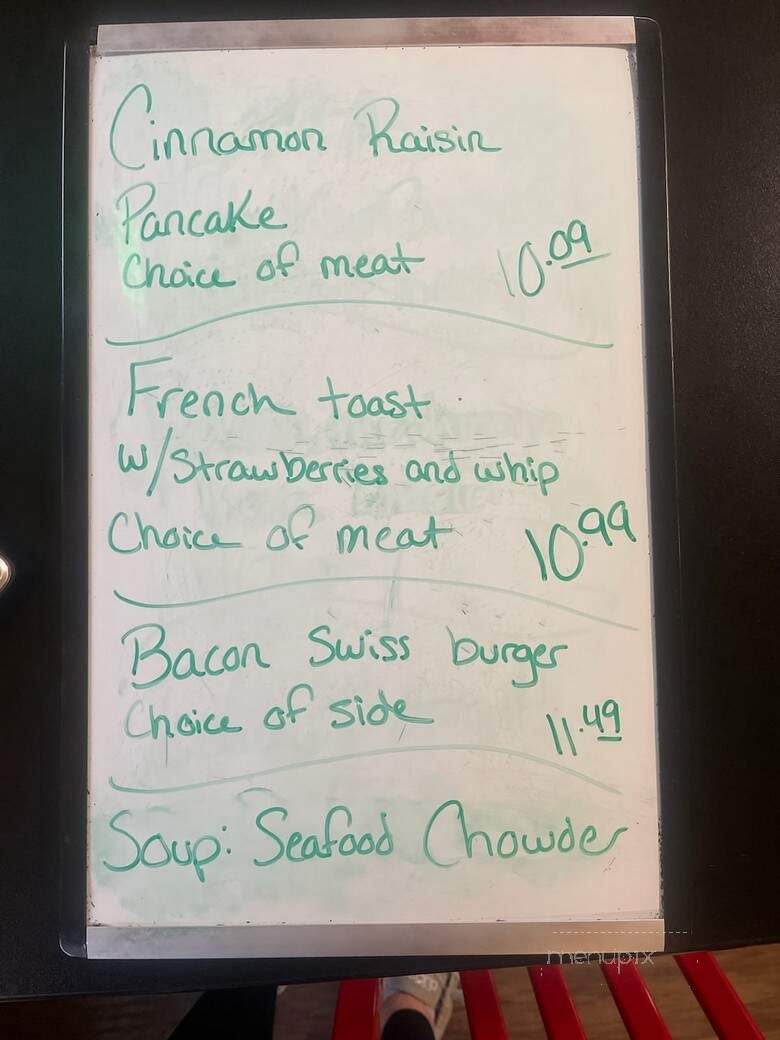 Cinnamon Raisin
Pancake
Choice of meat 10.09
French toast
w/strawberries and whip
Choice of meat 10.99
Bacon Swiss burger
Choice of side 11.49
Soup: Seafood Chowder
menupix